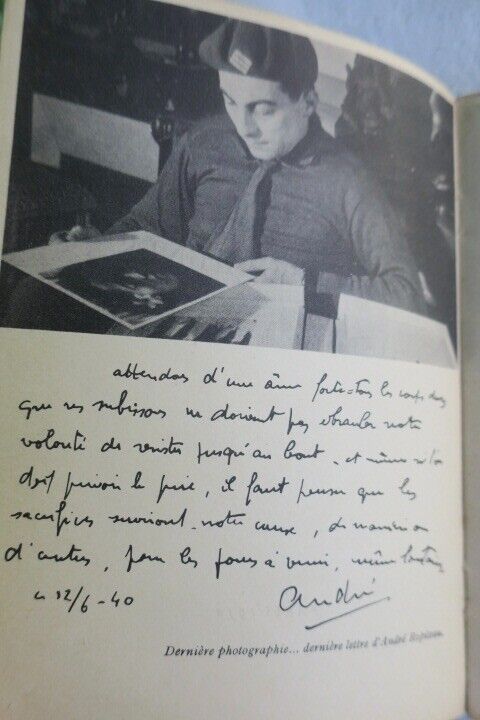 attendons d'une âme forte tous les coups durs
que nous subissons ne doivent pas ébranler notre
volonté de résister jusqu'au bout. et même si l'on
doit prévoir le pire, il faut penser que les
sacrifices serviront notre cause, de manière ou
d'autres, pour les jours à venir, même lointains
le 12/6-40
André
Dernière photographie... dernière lettre d'André Ropiteau.